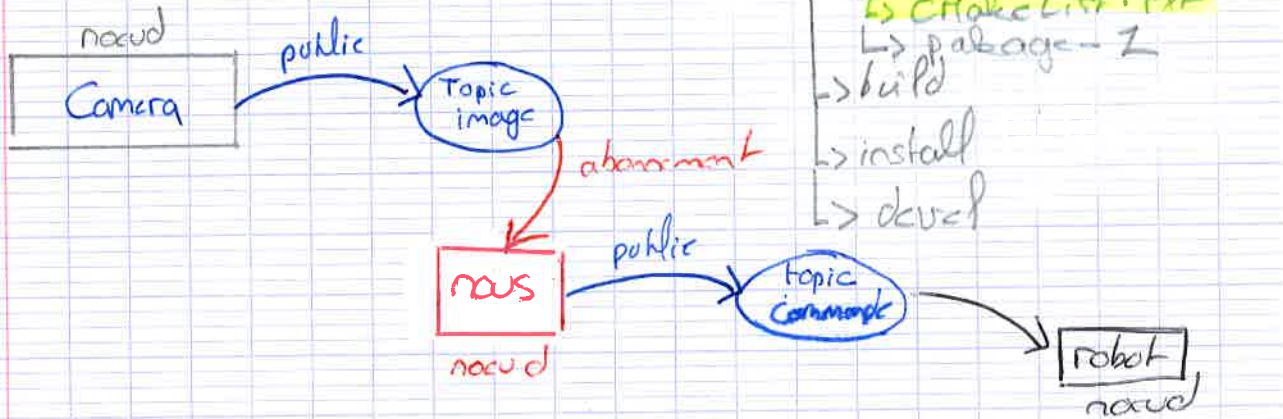 noeud
Camera
publie
Topic
image
abonnement
nous
noeud
publie
topic
commande
robot
noeud
↳ CMakeLists.txt
↳ pakage-1
↳ build
↳ install
↳ devel